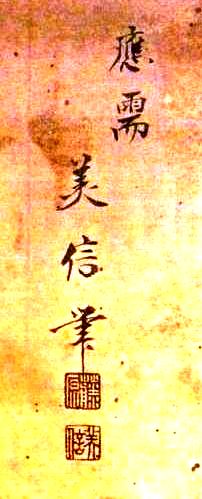 應需
美信筆